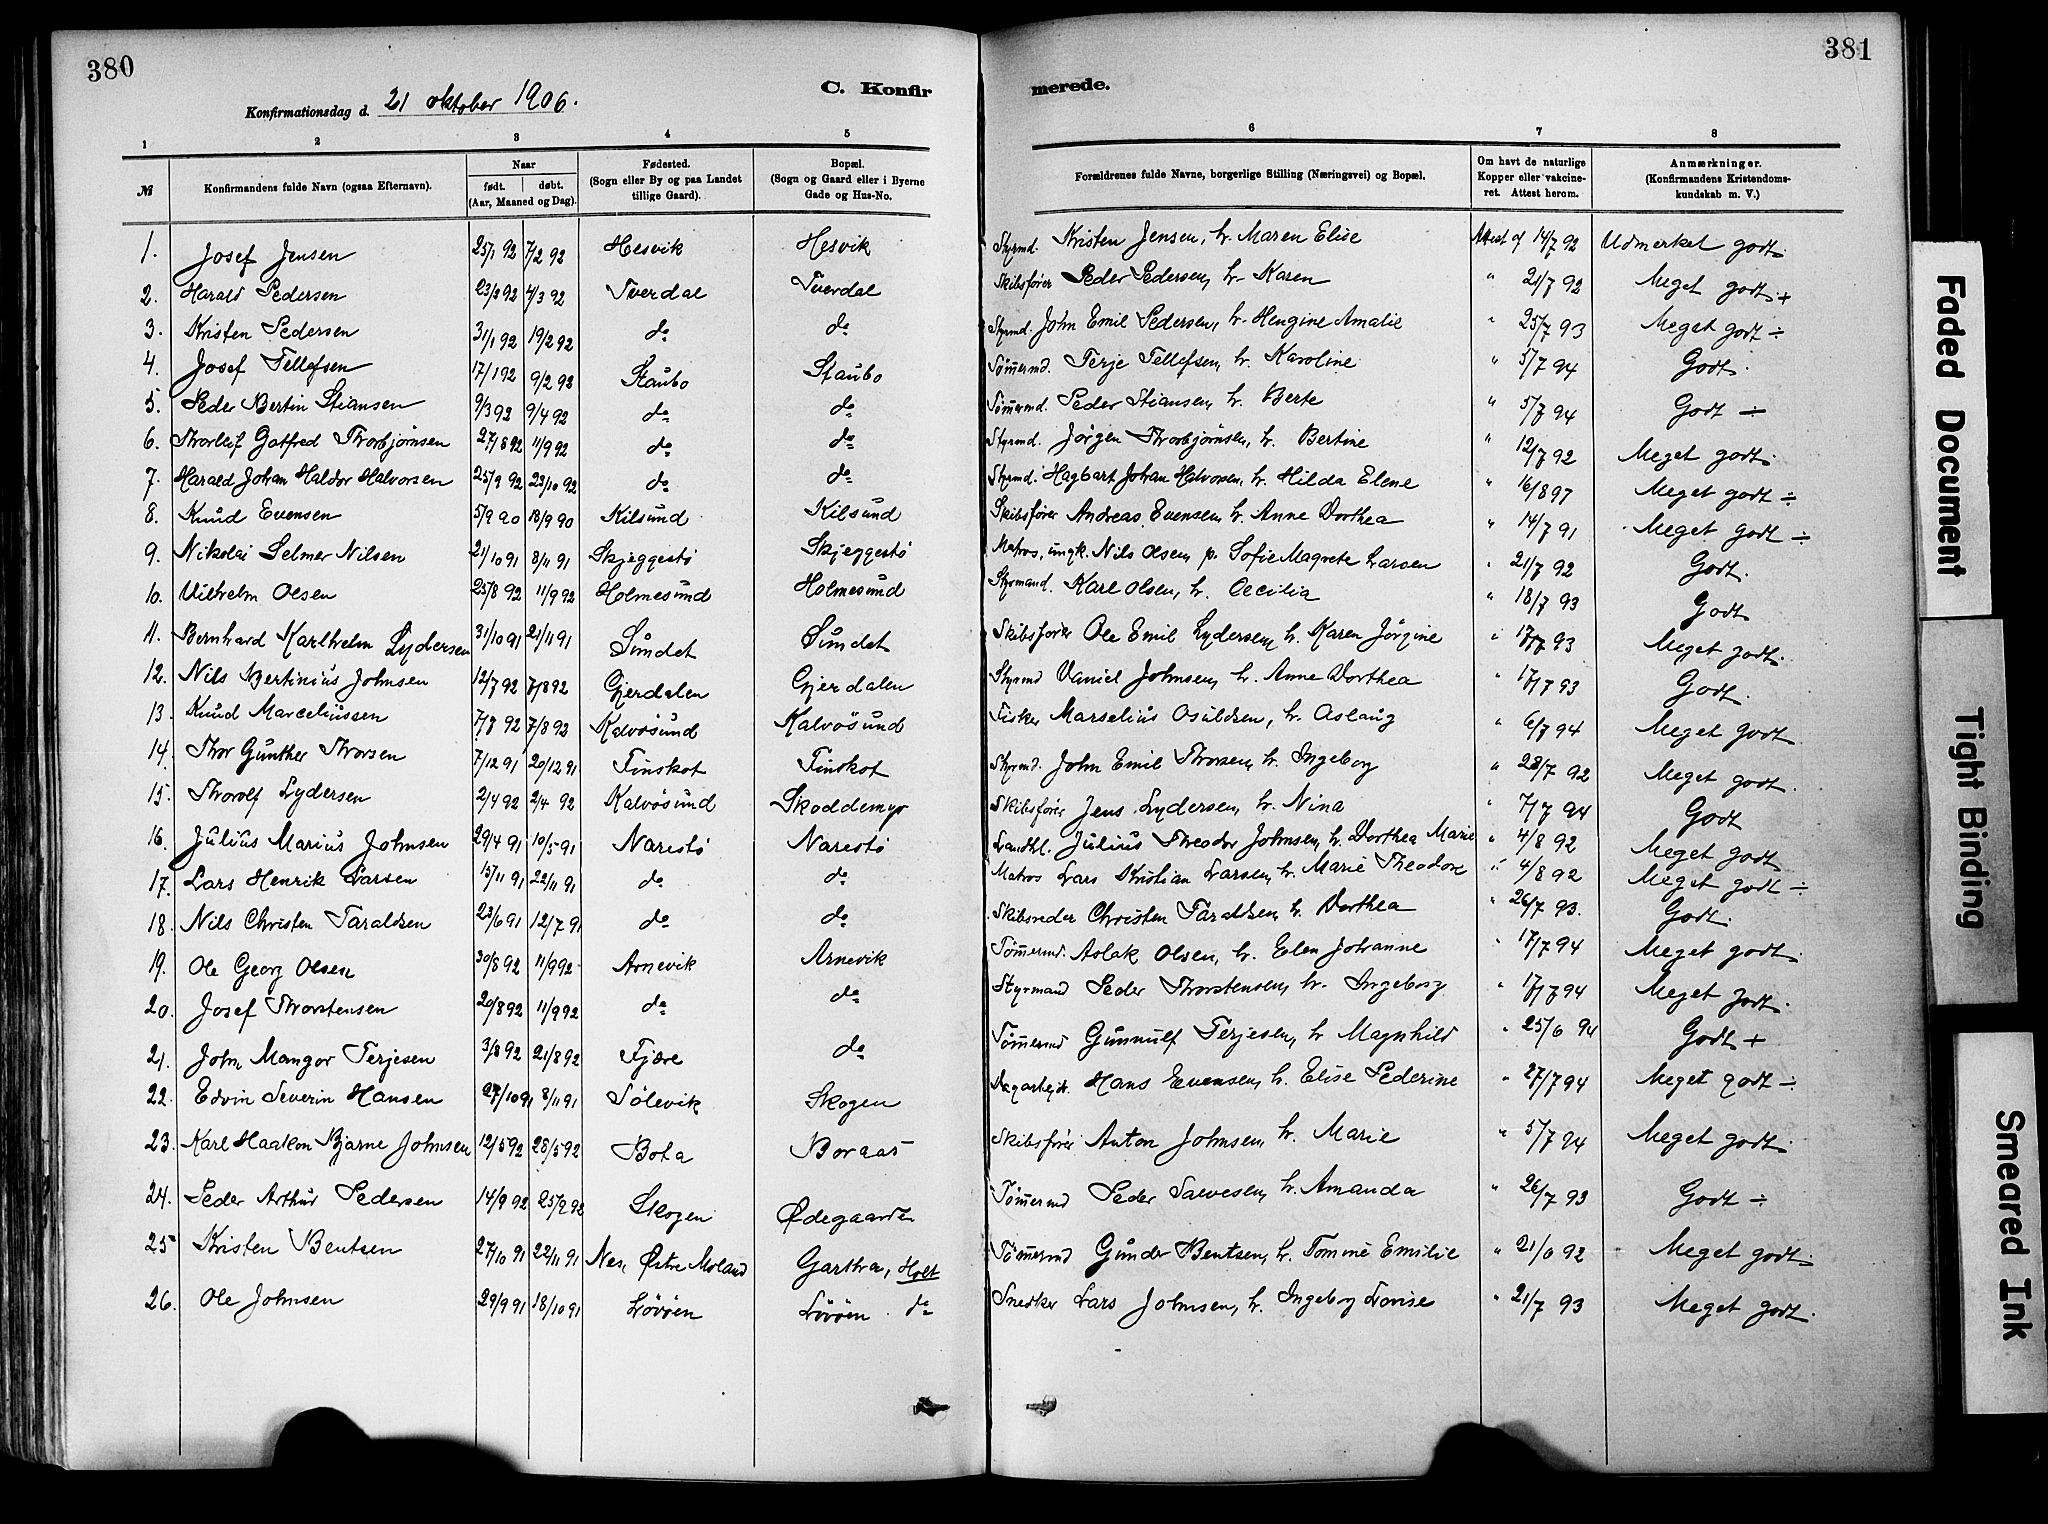 380
381
Konfirmationsdag d. 21 oktober 1906.
C. Konfir merede.
1 2 3 4 5 6 7 8
№ Konfirmandens fulde Navn (ogsaa Efternavn). Naar født. døbt. (Aar, Maaned og Dag). Fødested. (Sogn eller By og paa Landet tillige Gaard). Bopæl. (Sogn og Gaard eller i Byerne Gade og Hus-No. Forældrenes fulde Navne, borgerlige Stilling (Næringsvei) og Bopæl. Om havt de naturlige Kopper eller vakcineret. Attest herom. Anmærkninger. (Konfirmandens Kristendomskundskab m. V.)
1. Josef Jensen 25/1 92 7/2 92 Hesvik Hesvik Styrmd. Kristen Jensen, h. Maren Elise Attest af 14/7 92 Udmerket godt.
2. Harald Pedersen 23/2 92 4/3 92 Tverdal Tverdal Skibsfører Peder Pedersen, h. Karen " 21/7 92 Meget godt +
3. Kristen Pedersen 31/1 92 19/2 92 do do Styrmd. John Emil Pedersen, h. Hengine Amalie " 25/7 93 Meget godt ÷
4. Josef Tellefsen 17/1 92 9/2 92 Staubo Staubo Tømmermd. Terje Tellefsen, h. Karoline " 5/7 94 Godt.
5. Peder Bertin Stiansen 9/3 92 9/4 92 do do Tømmermd. Peder Stiansen, h. Berte " 5/7 94 Godt ÷
6. Thorleif Gotfred Thorbjørnsen 27/8 92 11/9 92 do do Styrmd. Jørgen Thorbjørnsen, h. Bertine " 12/7 92 Meget godt.
7. Harald Johan Haldor Halvorsen 25/9 92 23/10 92 do do Styrmd. Hagbart Johan Halvorsen, h. Hilda Elene " 16/8 97 Meget godt ÷
8. Knud Evensen 5/9 90 18/9 90 Kilsund Kilsund Skibsfører Andreas Evensen, h. Anne Dorthea " 14/7 91 Meget godt ÷
9. Nikolai Selmer Nilsen 21/10 91 8/11 91 Skjeggestø Skjeggestø Matros, ungk. Nils Olsen, p. Sofie Magrete Larsen " 21/7 92 Godt.
10. Vilhelm Olsen 25/8 92 11/9 92 Holmesund Holmesund Styrmand. Karl Olsen, h. Cecilia " 18/7 93 Godt
11. Bernhard Karlhelm Lydersen 31/10 91 21/11 91 Sundet Sundet Skibsfører Ole Emil Lydersen, h. Karen Jørgine " 17/7 93 Meget godt.
12. Nils Bertinius Johnsen 12/7 92 7/8 92 Gjerdalen Gjerdalen Styrmd Daniel Johnsen, h. Anne Dorthea " 17/7 93 Godt.
13. Knud Marceliussen 7/7 92 7/8 92 Kalvøsund Kalvøsund Fisker Marselius Osuldsen, h. Aslaug " 6/7 94 Meget godt.
14. Thor Gunther Thorsen 7/12 91 20/12 91 Finskot Finskot Styrmd. John Emil Thorsen, h. Ingeborg " 28/7 92 Meget godt.
15. Thorolf Lydersen 2/4 92 2/4 92 Kalvøsund Skoddemyr Skibsfører Jens Lydersen, h. Nina " 7/7 94 Godt
16. Julius Marius Johnsen 29/4 91 10/5 91 Narestø Narestø Landhl. Julius Theodor Johnsen, h. Dorthea Marie " 4/8 92 Meget godt
17. Lars Henrik Larsen 15/11 91 22/11 91 do do Matros Lars Kristian Larsen, h. Marie Theodore " 4/8 92 Meget godt ÷
18. Nils Christen Taraldsen 23/6 91 12/7 91 do do Skibsreder Christen Taraldsen, h. Dorthea " 26/7 93. Godt.
19. Ole Georg Olsen 30/8 92 11/9 92 Arnevik Arnevik Tømmermd. Aslak Olsen, h. Elen Johanne " 17/7 94 Meget godt.
20. Josef Thorstensen 20/8 92 11/9 92 do do Styrmand Peder Thorstensen, h. Ingeborg " 17/7 94 Meget godt.
21. John Mangor Terjesen 3/8 92 21/8 92 Fjære do Tømmermd Gunnulf Terjesen, h Magnhild " 25/6 94 Godt +
22. Edvin Severin Hansen 27/10 91 8/11 91 Sølevik Skogen Dagarbejd. Hans Evensen, h. Elise Pederine " 27/7 94 Meget godt ÷
23. Karl Haakon Bjarne Johnsen 12/5 92 28/5 92 Bota Boraas Skibsfører Anton Johnsen, h. Marie " 5/7 94 Meget godt.
24. Peder Arthur Pedersen 14/9 92 25/9 92 Skogen Ødegaarde Tømmermd Peder Salvesen, h. Amanda " 26/7 93 Godt ÷
25 Kristen Bentsen 27/10 91 22/11 91 Nes, Østre Moland Gartha, Holt Tømmermd Gunder Bentsen, h. Tomine Emilie " 21/6 92 Meget godt.
26. Ole Johnsen 29/9 91 18/10 91 Løvøen Løvøen. do Snedker Lars Johnsen, h. Ingeborg Lovise " 21/7 93 Meget godt.
Faded Document
Tight Binding
Smeared Ink